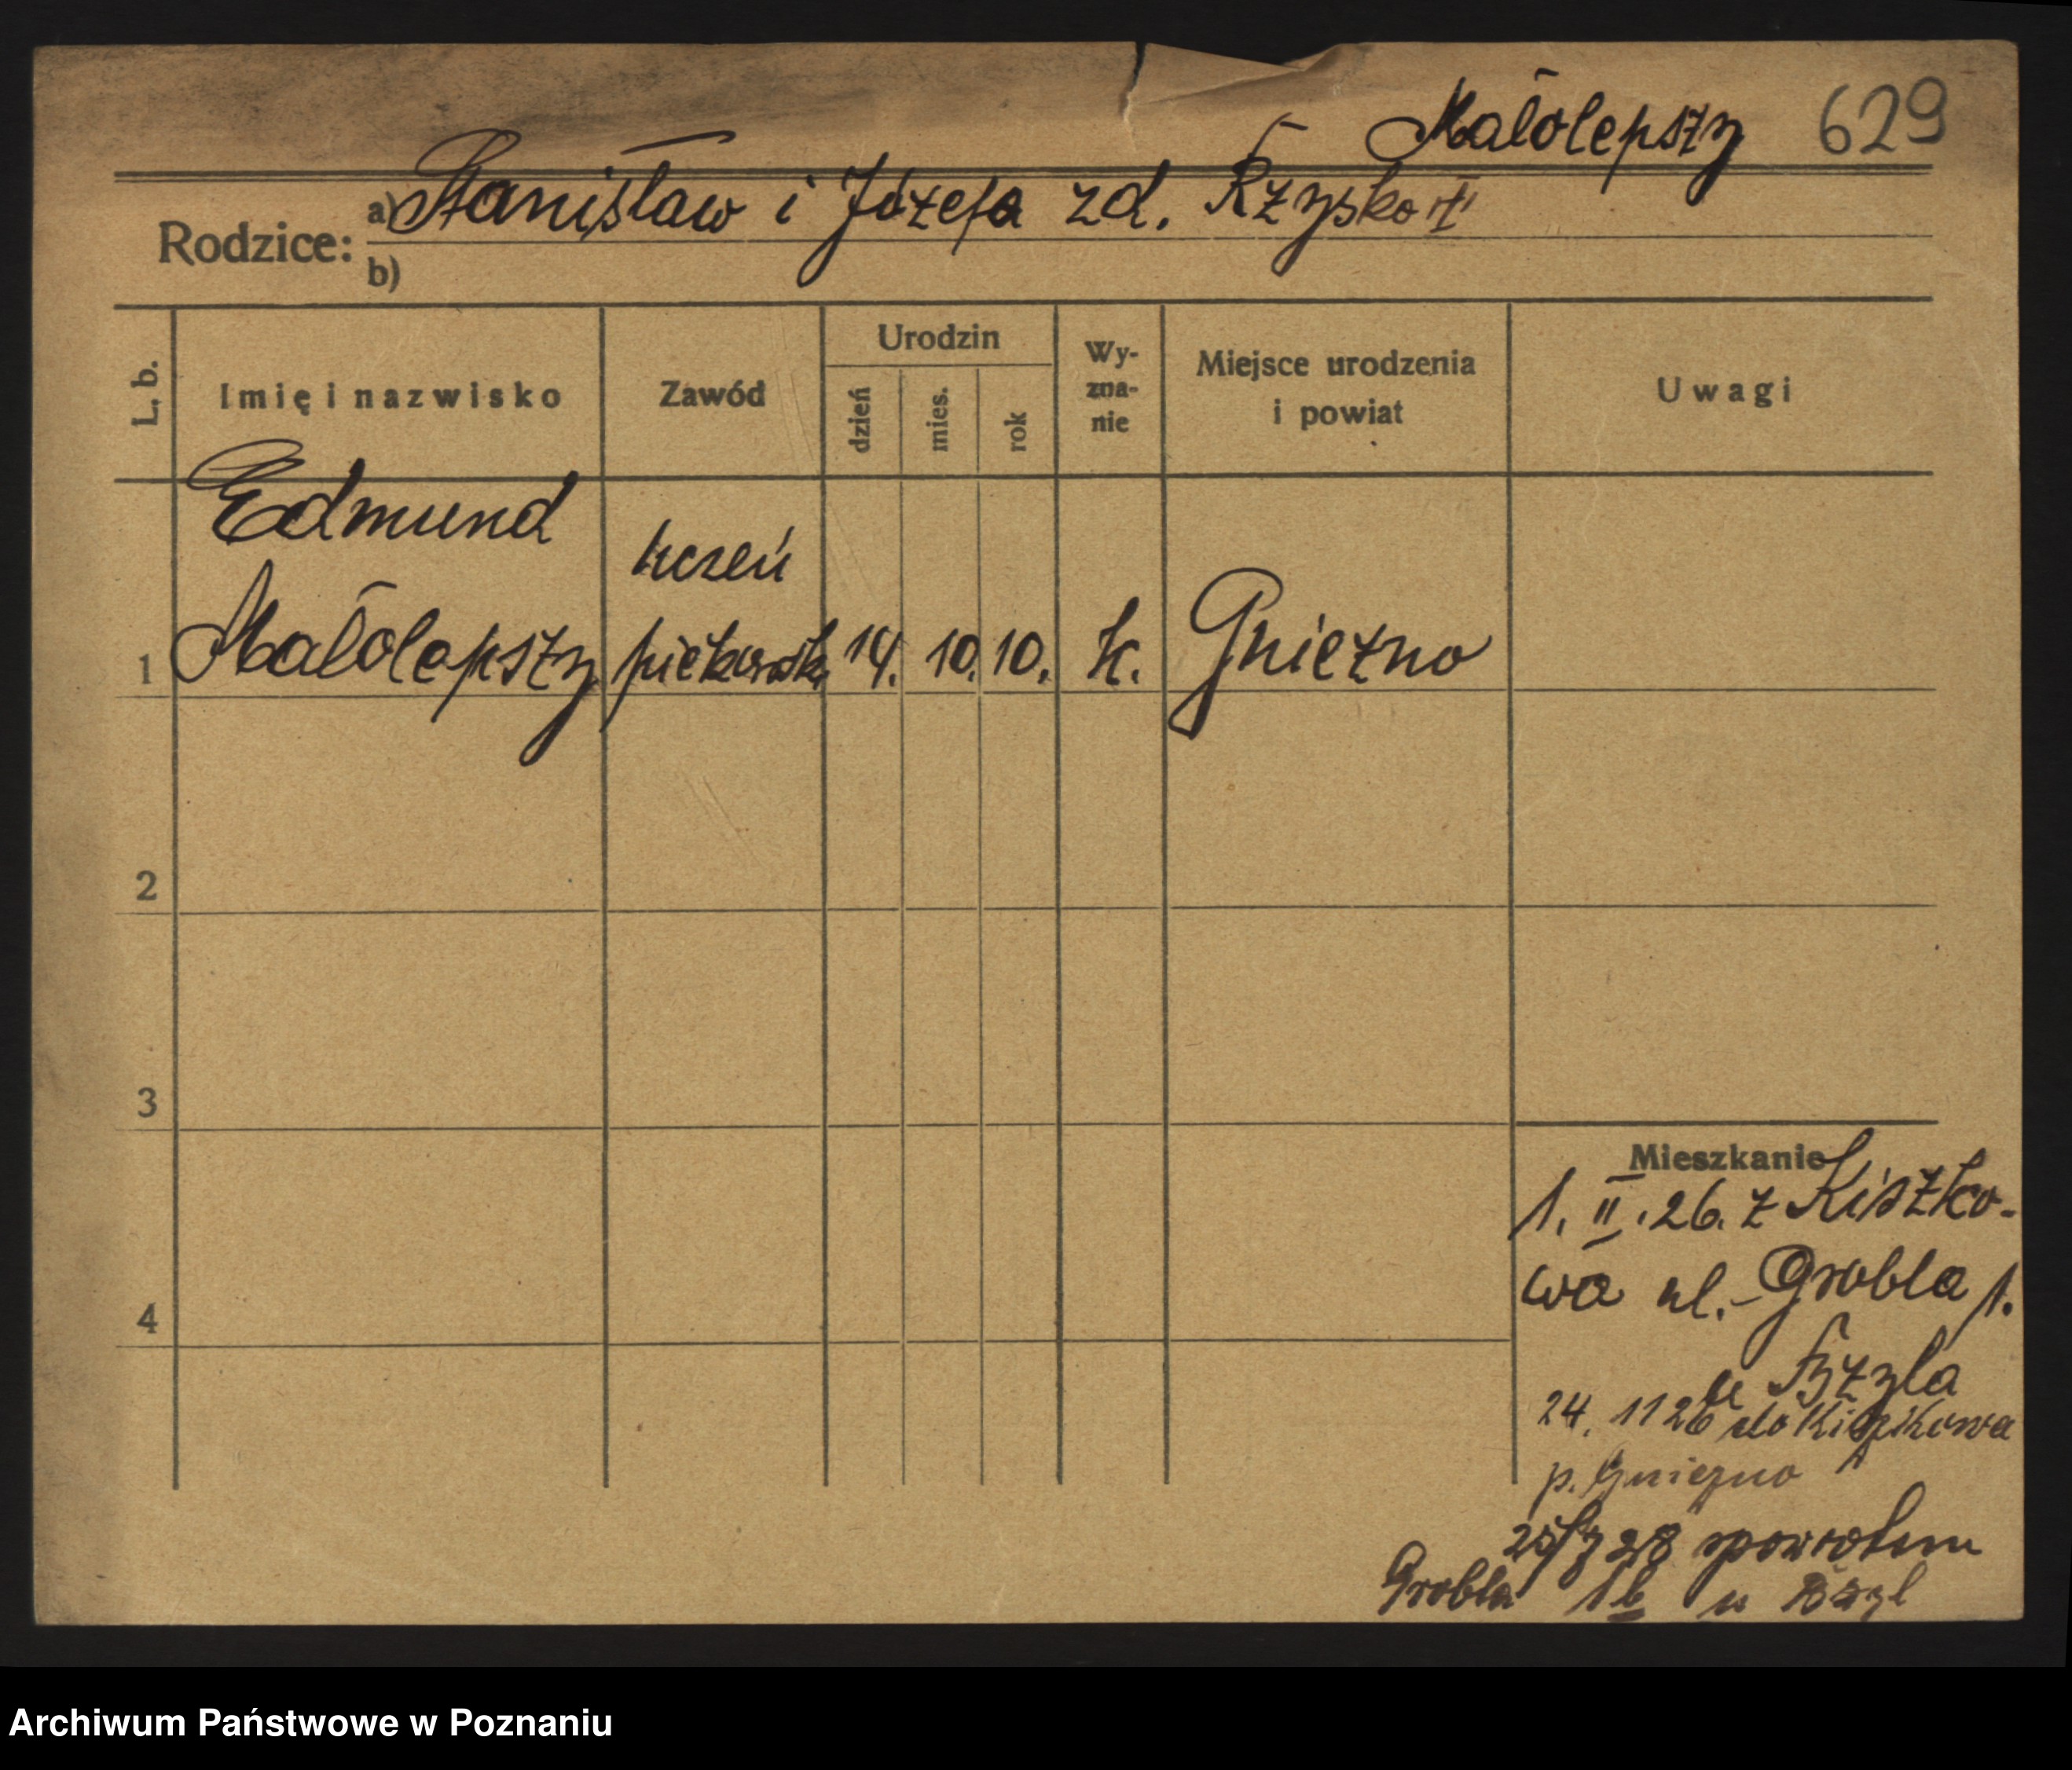 Małolepszy 629
Rodzice: a) Stanisław i Józefa zd. Rzysko
b)
L. b. Imię i nazwisko Zawód Urodzin dzień mies. rok Wy-zna-nie Miejsce urodzenia i powiat Uwagi
Edmund uczeń
1 Małolepszy piekarski 14. 10. 10. k. Gniezno
2
3
4
Mieszkanie
1. II. 26. z Kiszko-
wa ul. Grobla 1.
u
24. 11 26 do Kiszkowa
p. Gniezno
28 spowrotem
Grobla 1b u
Archiwum Państwowe w Poznaniu